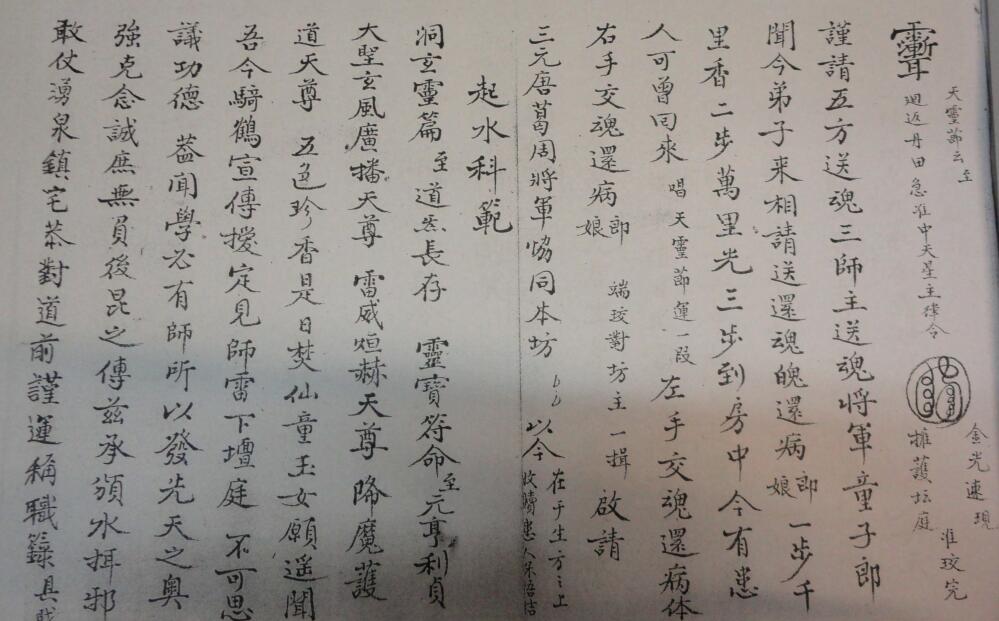 天靈節云至
週返丹田急准中天星主律令
金光速現
擁護坛庭
准珓完
謹請五方送魂三師主送魂將軍童子郎
聞今弟子来相請送還魂魄還病郎娘一步千
里香二步萬里光三步到房中今有患
人可曾回來 唱天靈節運一段 左手交魂還病体
右手交魂還病郎娘 端珓對坊主一揖 啟請
三元唐葛周將軍恊同本坊 以今 在于生方之上
起水科範
洞玄靈篇至道炁長存 靈寶符命至元亨利貞
大聖玄風廣播天尊 雷威烜赫天尊 降魔護
道天尊 五色珍香是日焚仙童玉女願遥聞
吾今騎鶴宣傳擾定見師雷下壇庭 不可思
議功德 葢聞學必有師所以發先天之奥
強克念誠庶無負後昆之傳兹承頒水捐邪
敢仗湧泉鎮宅恭對道前謹運稱職籙具